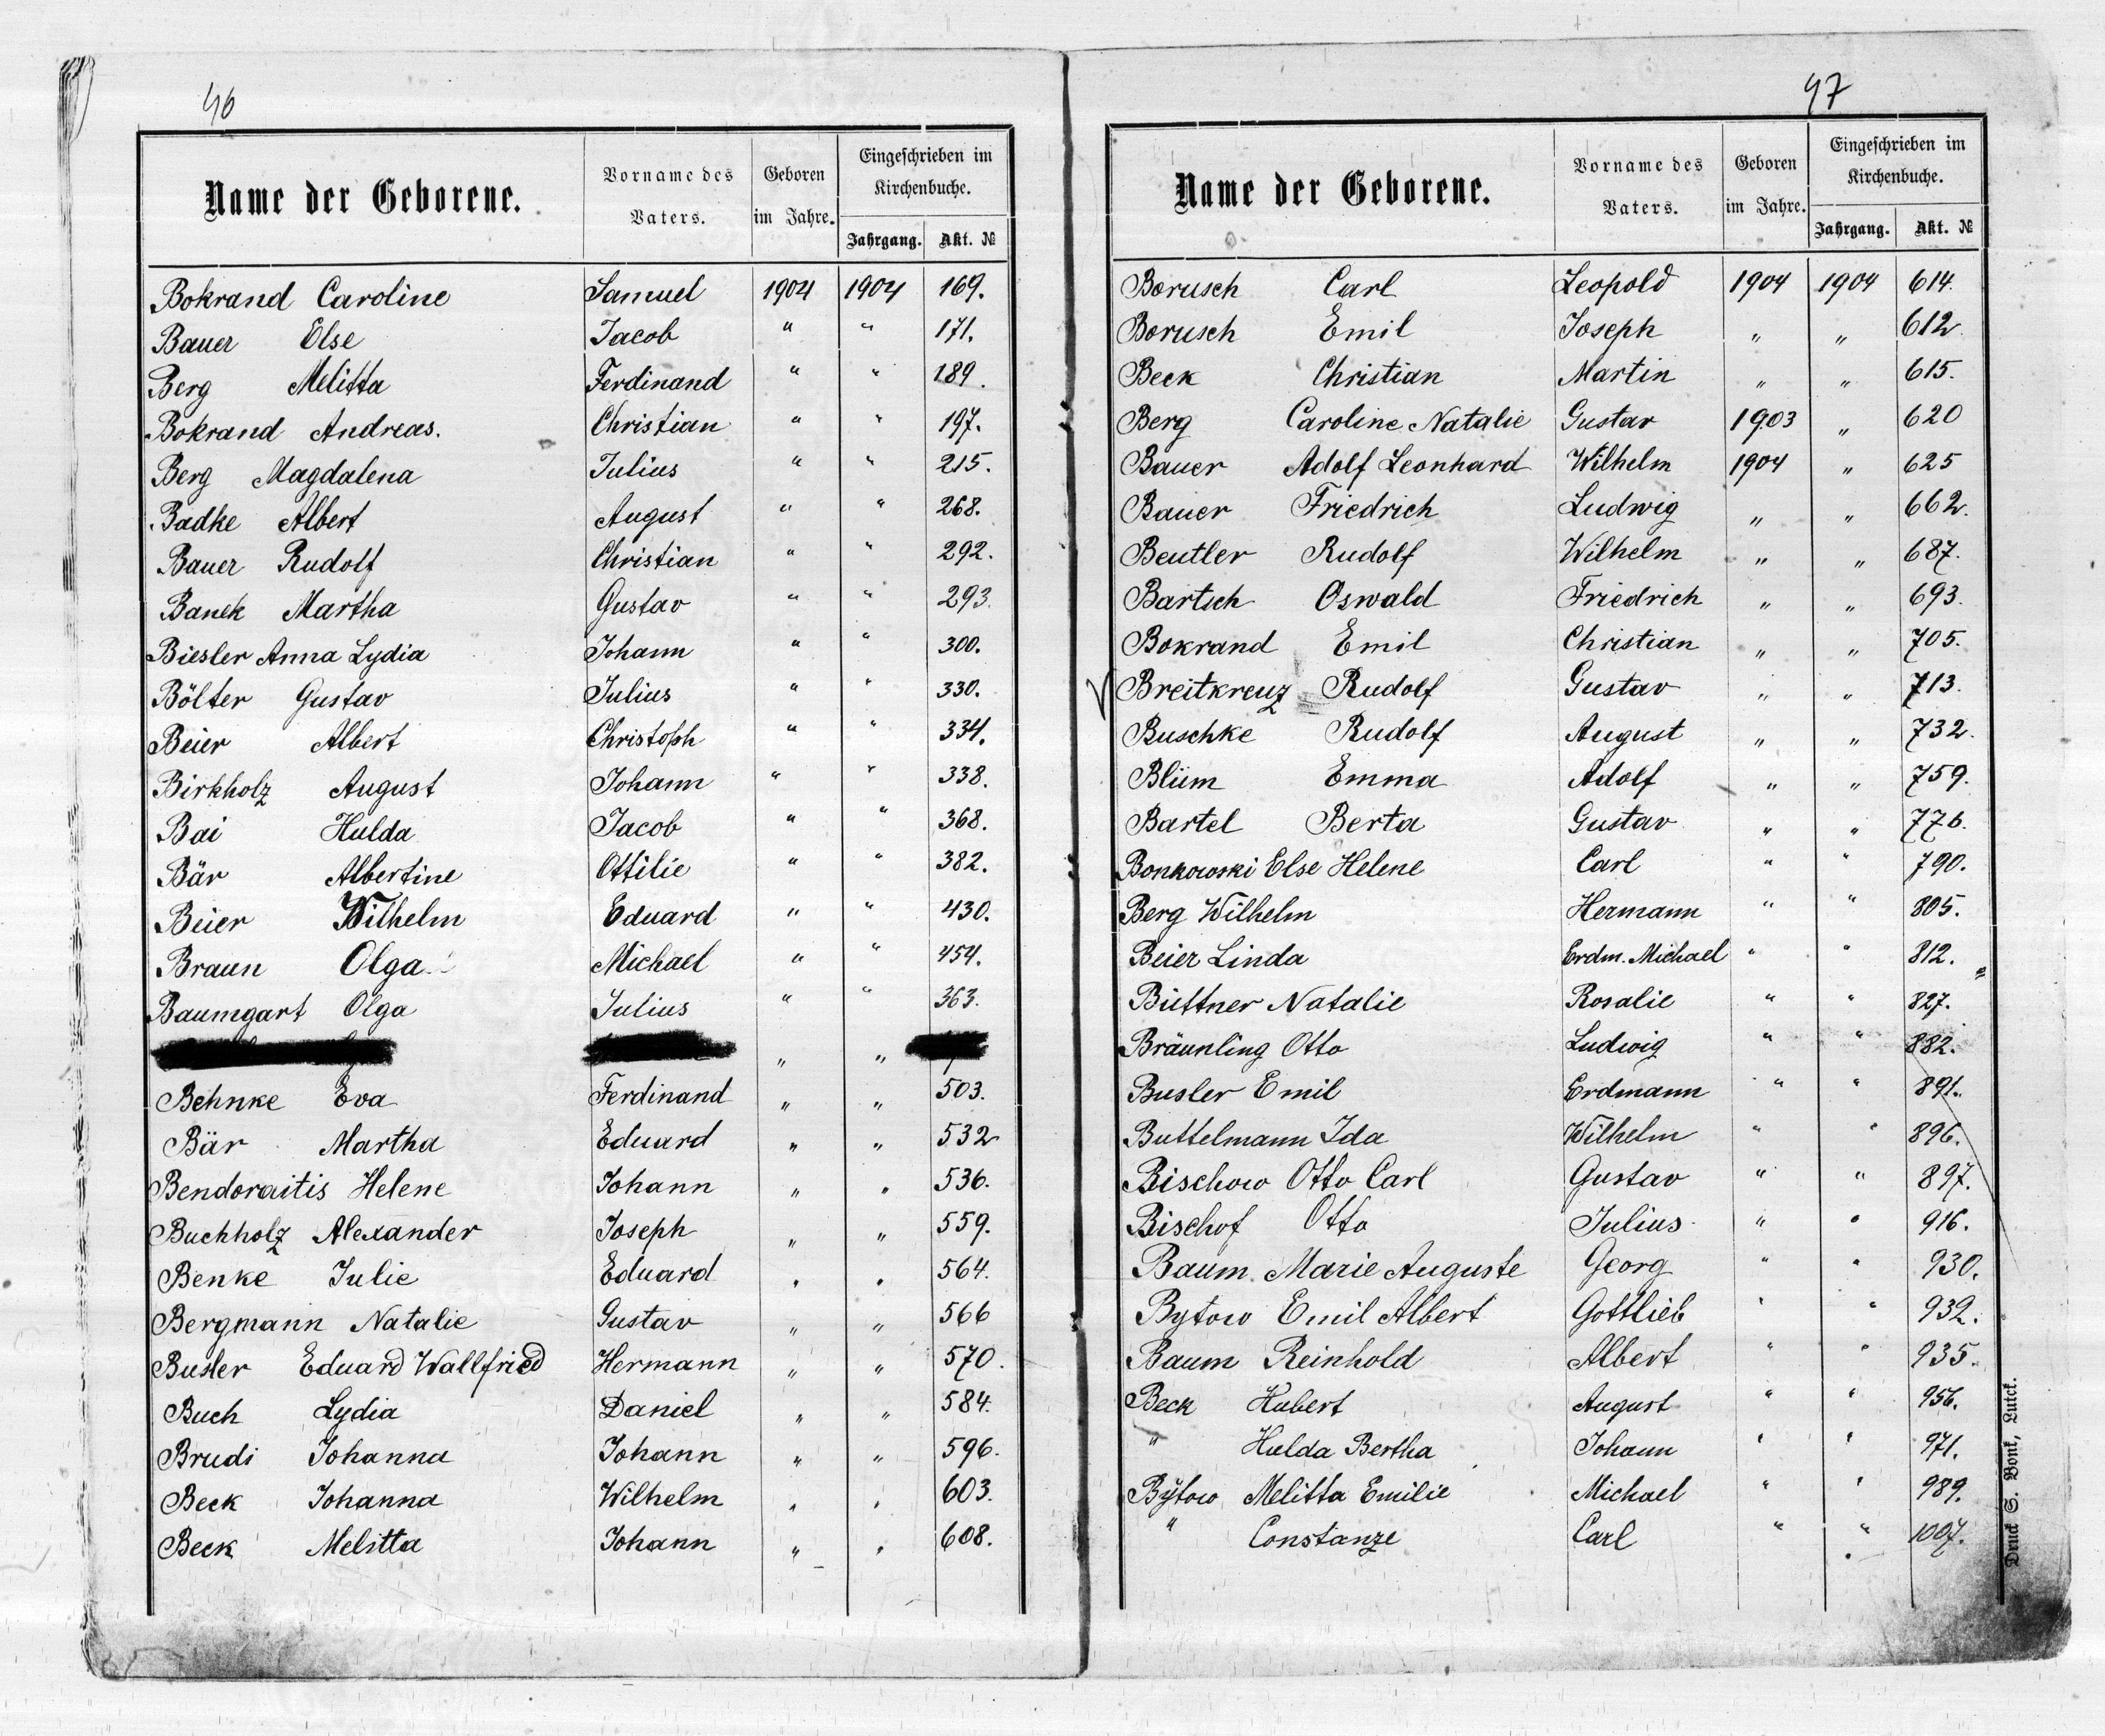 46
Name der Geborene. Vorname des Vaters. Geboren im Jahre. Eingeschrieben im Kirchenbuche. Jahrgang. Akt. №
Bokrand Caroline Samuel 1904 1904 169.
Bauer Else Jacob " " 171.
Berg Melitta Ferdinand " " 189.
Bokrand Andreas. Christian " " 197.
Berg Magdalena Julius " " 215.
Badke Albert August " " 268.
Bauer Rudolf Christian " " 292.
Banek Martha Gustav " " 293.
Biesler Anna Lydia Johann " " 300.
Bölter Gustav Julius " " 330.
Beier Albert Christoph " " 334.
Birkholz August Johann " " 338.
Bai Hulda Jacob " " 368.
Bär Albertine Ottilie " " 382.
Beier Wilhelm Eduard " " 430.
Braun Olga Michael " " 454.
Baumgart Olga Julius " " 363.
" "
Behnke Eva Ferdinand " " 503.
Bär Martha Eduard " " 532
Bendoraitis Helene Johann " " 536.
Buchholz Alexander Joseph " " 559.
Benke Julie Eduard " " 564.
Bergmann Natalie Gustav " " 566
Busler Eduard Wallfried Hermann " " 570.
Buch Lydia Daniel " " 584.
Brudi Johanna Johann " " 596.
Beck Johanna Wilhelm " " 603.
Beck Melitta Johann " " 608.
47
Name der Geborene. Vorname des Vaters. Geboren im Jahre. Eingeschrieben im Kirchenbuche. Jahrgang. Akt. №
Borusch Carl Leopold 1904 1904 614.
Borusch Emil Joseph " " 612.
Beck Christian Martin " " 615.
Berg Caroline Natalie Gustav 1903 " 620
Bauer Adolf Leonhard Wilhelm 1904 " 625
Bauer Friedrich Ludwig " " 662.
Beutler Rudolf Wilhelm " " 687.
Bartsch Oswald Friedrich " " 693.
Bokrand Emil Christian " " 705.
Breitkreuz Rudolf Gustav " " 713.
Buschke Rudolf August " " 732.
Blüm Emma Adolf " " 759.
Bartel Berta Gustav " " 776.
Bonkowski Else Helene Carl " " 790.
Berg Wilhelm Hermann " " 805.
Beier Linda Erdm. Michael " " 812.
Büttner Natalie Rosalie " " 827.
Bräunling Otto Ludwig " " 882.
Busler Emil Erdmann " " 891.
Buttelmann Ida Wilhelm " " 896.
Bischow Otto Carl Gustav " " 897.
Bischof Otto Julius " " 916.
Baum Marie Auguste Georg " " 930.
Bytow Emil Albert Gottlieb " " 932.
Baum Reinhold Albert " " 935.
Beck Hubert August " " 956.
" Hulda Bertha Johann " " 971.
Bÿtow Melitta Emilie Michael " " 989.
" Constanze Carl " " 1007.
Druck S. Bont, Lutck.